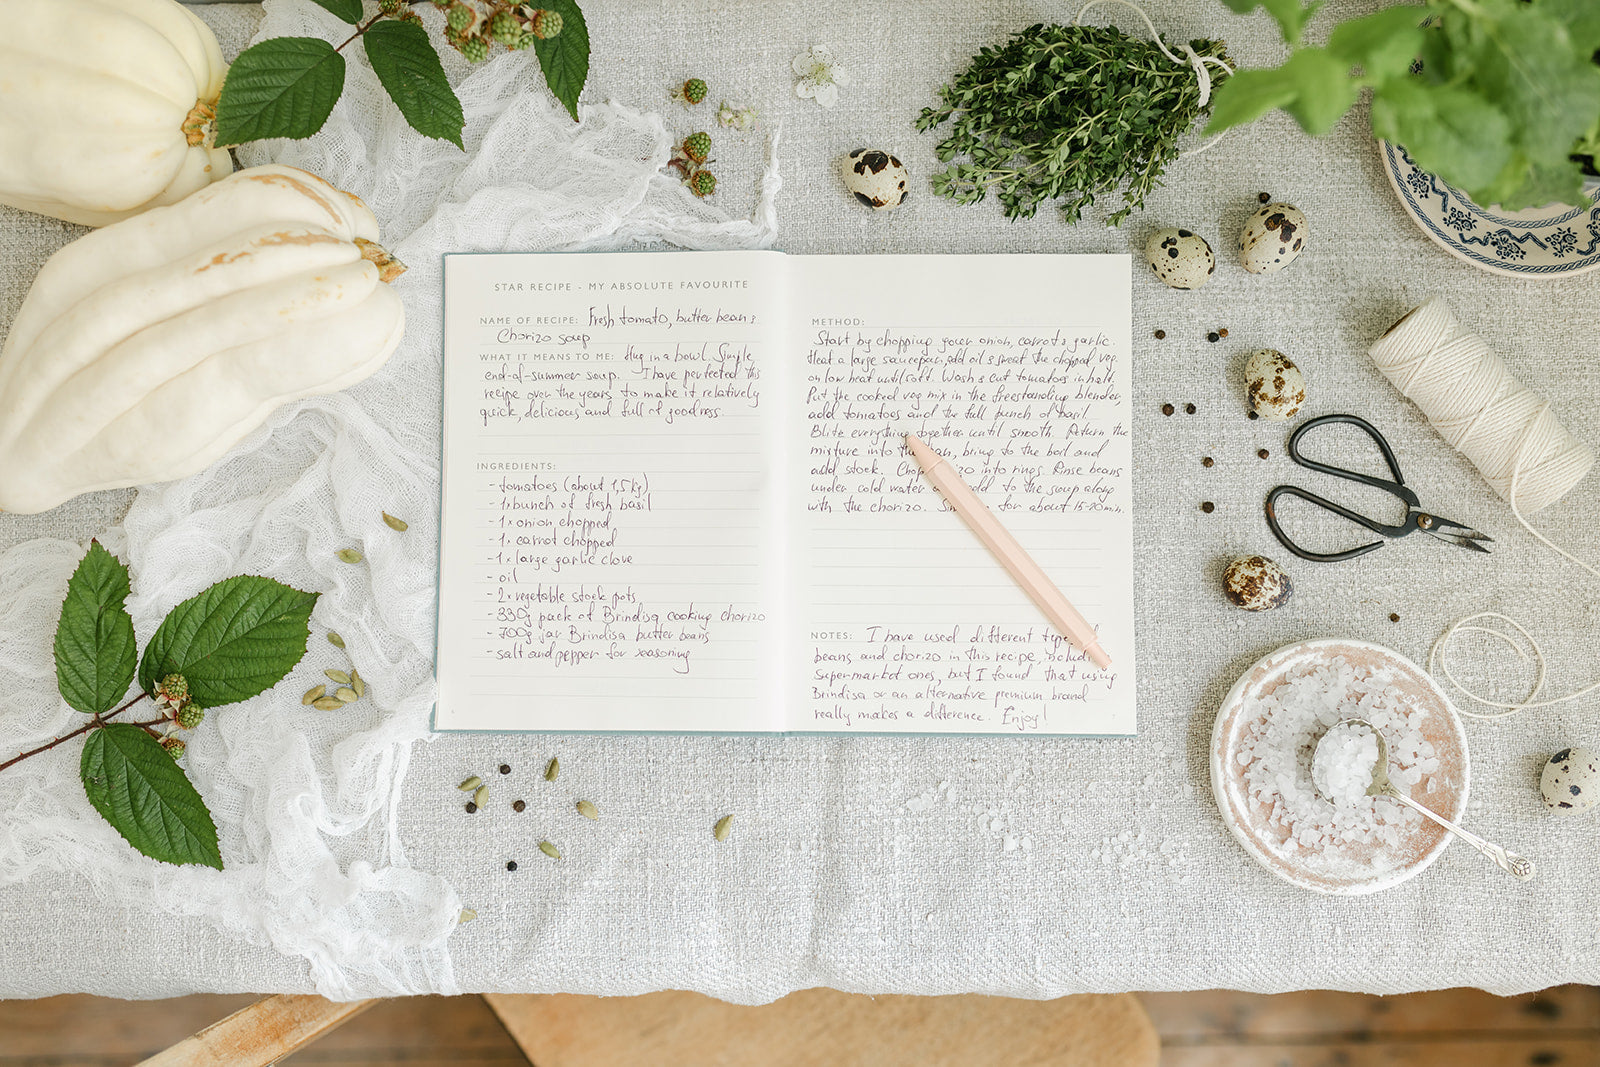 STAR RECIPE - MY ABSOLUTE FAVOURITE
NAME OF RECIPE: Fresh tomato, butter beans
Chorizo soup
WHAT IT MEANS TO ME: Hug in a bowl. Simple,
end-of-summer soup. I have perfected this
recipe over the years to make it relatively
quick, delicious and full of goodness.
INGREDIENTS:
- tomatoes (about 1,5kg)
- 1x bunch of fresh basil
- 1x onion chopped
- 1x carrot chopped
- 1x large garlic clove
- oil
- 2x vegetable stock pots
- 330g pack of Brindisa cooking chorizo
- 700g jar Brindisa butter beans
- salt and pepper for seasoning
METHOD:
Start by chopping your onion, carrot & garlic.
Heat a large saucepan, add oil & sweat the chopped veg.
on low heat until soft. Wash & cut tomatoes in half.
Put the cooked veg mix in the freestanding blender,
add tomatoes and the full bunch of basil.
Blitz everything together until smooth. Return the
mixture into the pan, bring to the boil and
add stock. Chop into rings. Rinse beans
under cold water add to the soup along
with the chorizo. for about 15-20min.
NOTES: I have used different
beans and chorizo in this recipe,
supermarket ones, but I found that using
Brindisa or an alternative premium brand
really makes a difference. Enjoy!